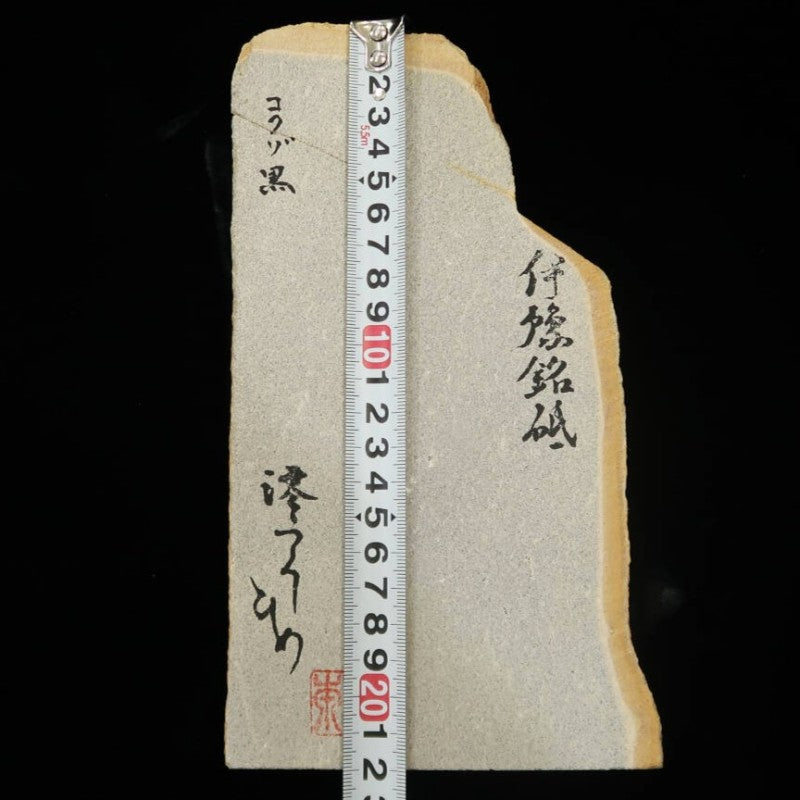 伊豫銘砥
コクゾ黒
2
3
5.5m
4
5
6
7
8
9
10
1
2
3
4
5
6
7
8
9
20
1
2